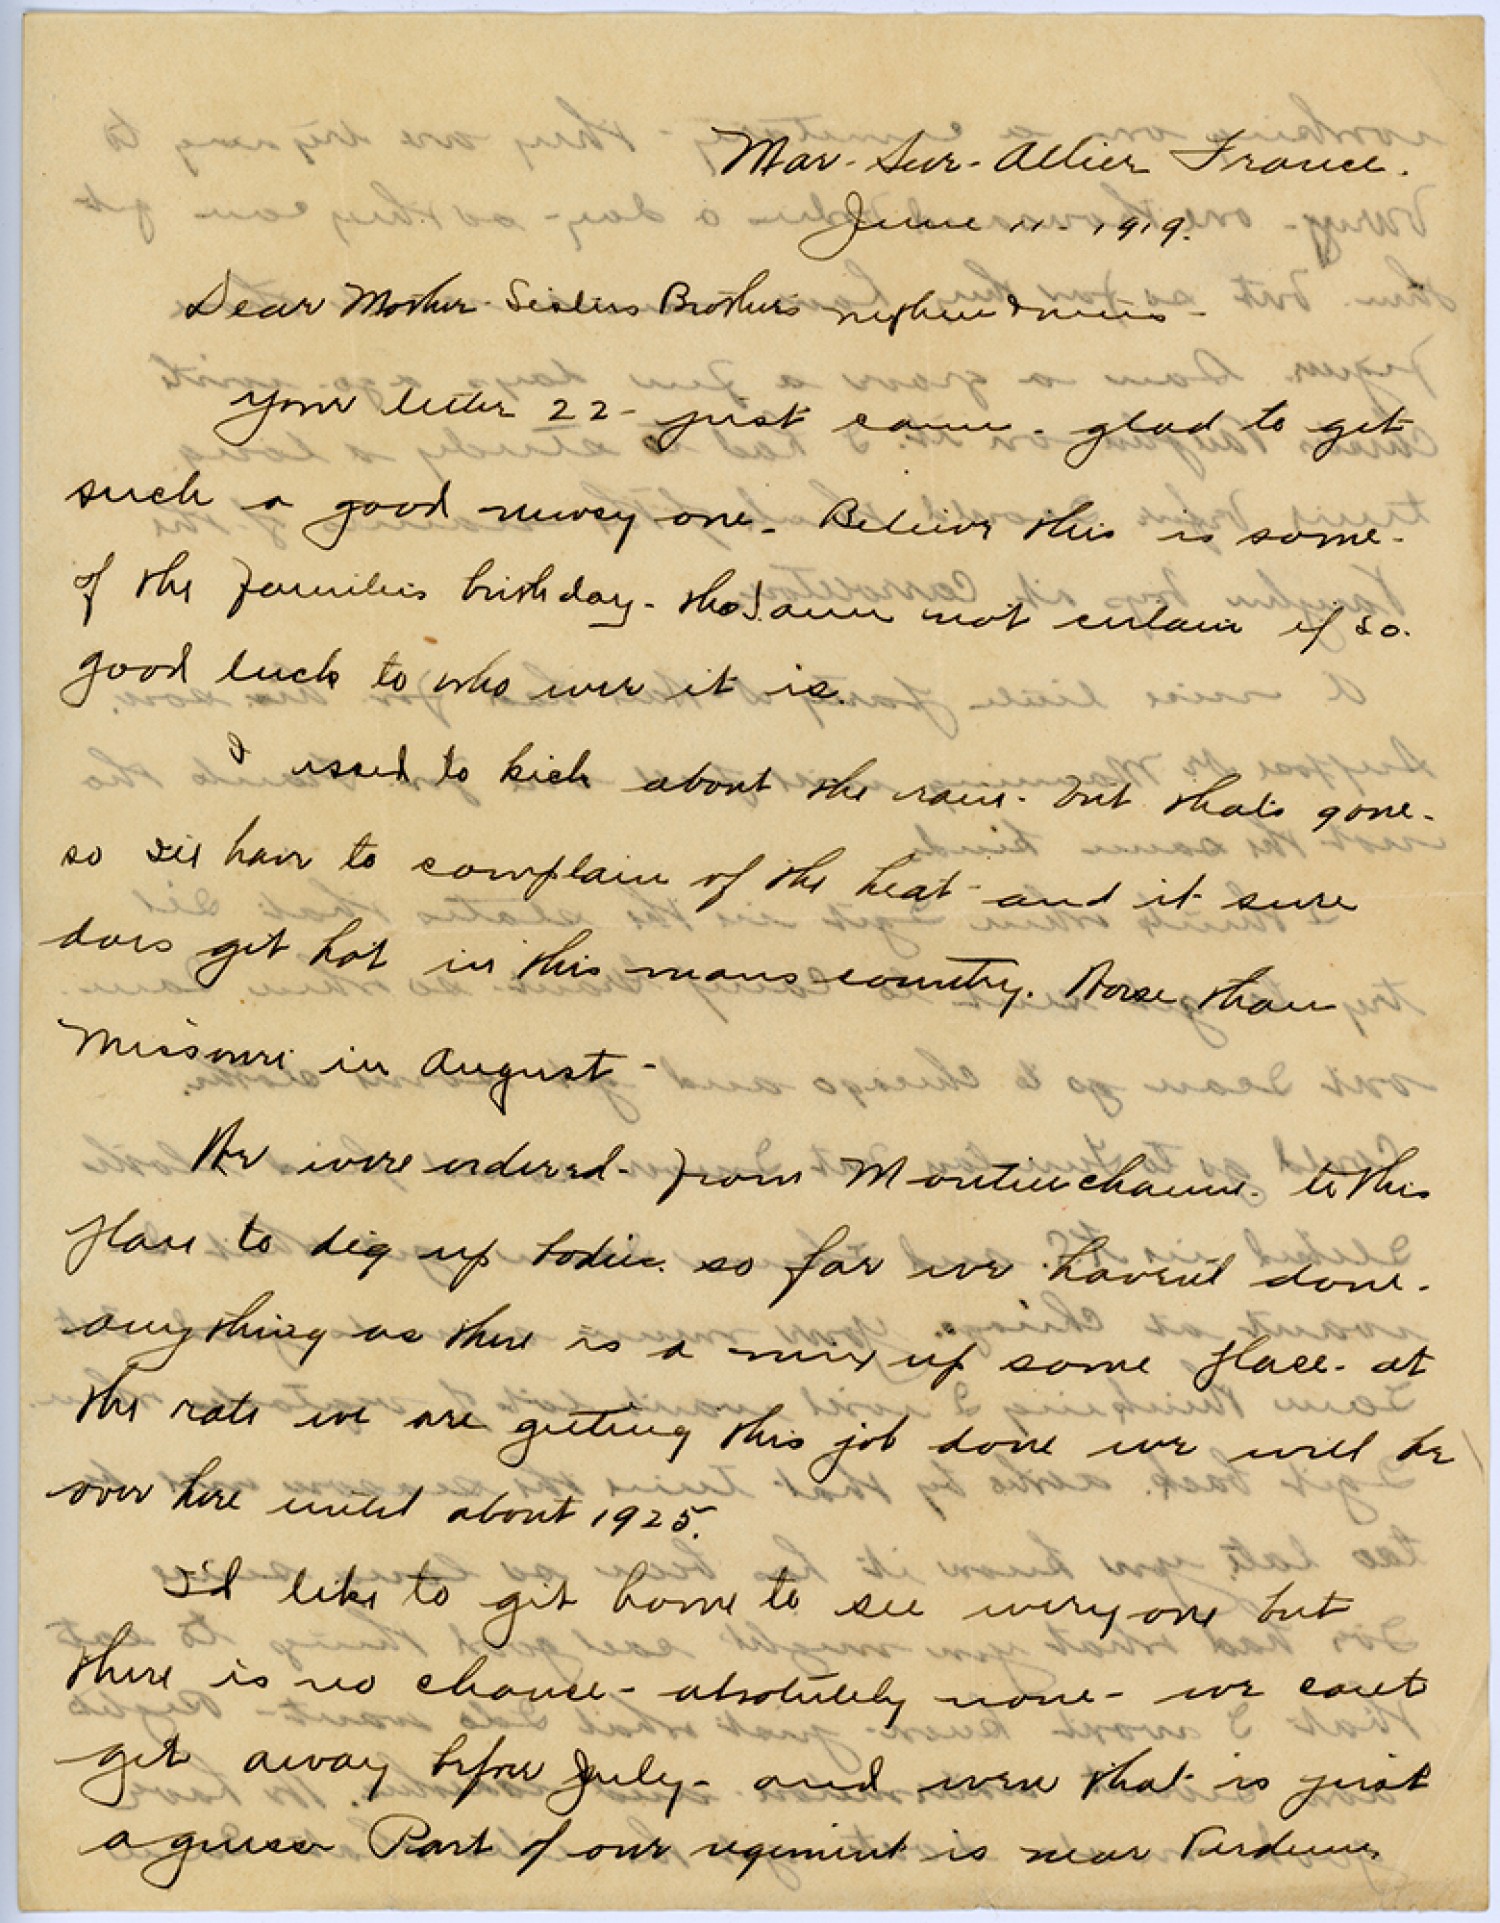 Mar-Sur-Allier France.
June 11-1919.
Dear Mother Sisters Brothers nephew & nieces-
Your letter 22- just came- glad to get
such a good newsy one- Believe this is some-
of the families birthday- tho I am not certain if so.
good luck to who ever it is.
I used to kick about the rain- but thats gone-
so I'll have to complain of the heat- and it sure
does get hot in this mans country. Worse than
Missouri in August-
We were ordered- from Montierchaume- to this
place to dig up bodies. so far we haven't done-
anything as there is a mix up some place- at
the rate we are getting this job done we will be
over here until about 1925.
I'd like to get home to see everyone but
there is no chance- absolutely none- we cant
get away before July- and even that is just
a guess Part of our regiment is near Verdune,